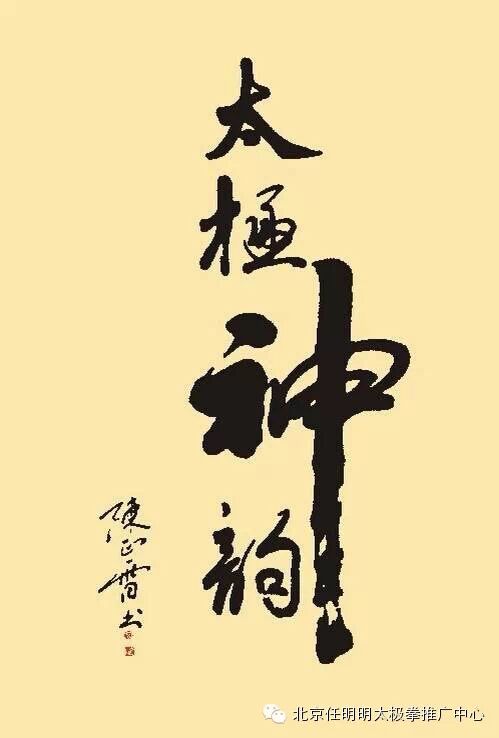 太極神韵
陳正雷书
北京任明明太极拳推广中心